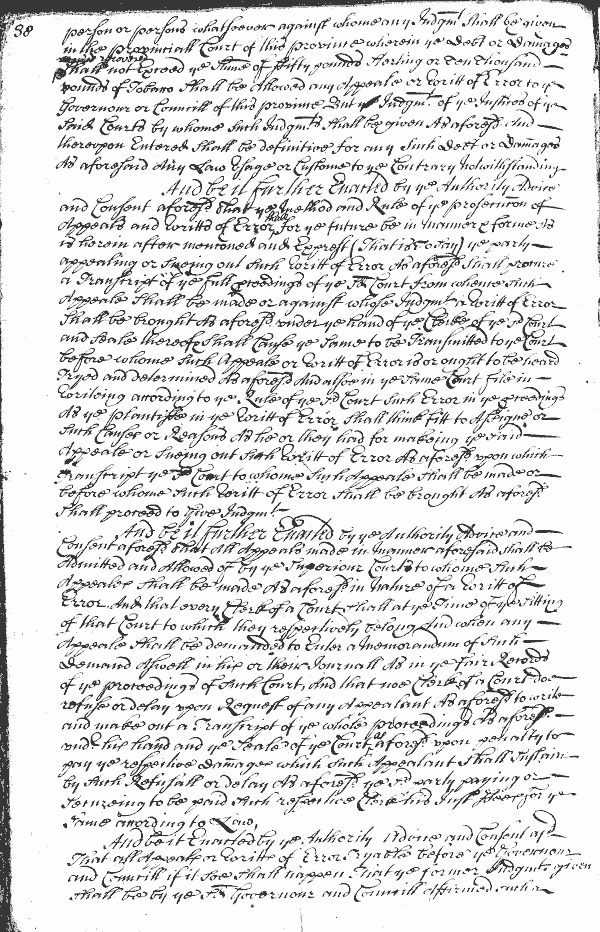 38
person or persons whatsoever against whome any Judgmt Shall be given
in the Provinciall Court of this province wherein ye Debt or Damages
Shall not Exceed ye Sume of fifty pounds Sterling or ten thousand
pounds of Tobaco Shall be Allowed any Appeale or Writt of Error to ye
Governour or Councill of this province But ye Judgmt. of ye Justices of ye
Said Courts by whome Such Judgmts Shall be given As aforesd. And
thereupon Entered Shall be definitive for any Such Debt or Damages
As aforesaid Any Law Usage or Custome to ye Contrary Notwithstanding
And be it further Enacted by ye Authority Advice
and Consent aforesd. that ye Method and Rule of ye prosecution of
Appeals and Writts of Error Shall for ye future be in Manner & forme As
is herein after mentioned and Exprest (That is to Say) ye party
appealing or Sueing out Such Writt of Error As aforesd Shall procure
a Transcript of ye full proceedings of ye Sd. Court from whence Such
Appeale Shall be made or against whose Judgmt a Writt of Error
Shall be brought As aforesd under ye hand of ye Clerke of ye Sd Court
and Seale thereof Shall Cause ye Same to be Transmitted to ye Court
before whome Such Appeale or Writt of Error is or ought to be heard
Tryed and determined As aforesd And also in ye Same Court file in
Writeing according to ye Rule of ye Sd Court Such Error in ye proceedings
As ye plantiffe in ye Writt of Error Shall think fitt to Assigne or
Such Causes or Reasons As he or they had for makeing ye said
Appeale or Sueing out Such Writt of Error As aforesd upon which
transcript ye Sd Court to whome Such Appeale Shall be made or
before whome Such Writt of Error Shall be brought As aforesd
Shall proceed to Give Judgmt.
And be it further Enacted by ye Authority Advice and
Consent aforesd. that All Appeals made in Manner aforesaid shall be
Admitted and Allowed of by ye Superiour Courts to whome Such
Appeales Shall be made As aforesd in Nature of a Writt of
Error And that every Clerk of a Court Shall at ye Time of ye Sitting
of that Court to which they respectively belong And when any
Appeale Shall be demanded to Enter a Memorandum of Such
Demand As well in his or their Journall As in ye fair Records
of ye proceedings of Such Court, And that noe Clerk of a Court doe
refuse or delay upon Request of any Appealant As aforesd to write
and make out a Transcript of ye whole proceedings As aforesd.
undr. his hand and ye Seale of ye Court as aforesd upon penalty to
pay ye respective damages which Such Appealant Shall Sustain
by Such Refusall or delay As aforesd ye Sd party paying or
Secureing to be paid Such respective Clerk his Just fees for ye
Same according to Law,
And be it Enacted by ye Authority Advice and Consent afsd
That all Appeals or Writts of Error Tryable before ye Governour
and Councill if it Soe Shall happen That ye former Judgmts given
Shall be by ye Sd. Governour and Councill Affirmed such a